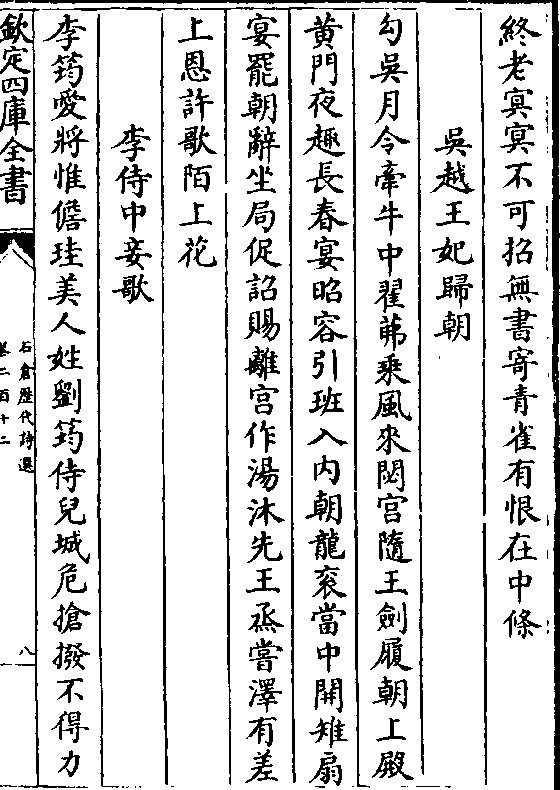 終老㝠㝠不可招無書寄青雀有恨在中條
吳越王妃歸朝
勾吳月令牽牛中翟茀乘風來閟宫隨王劍履朝上殿
黄門夜趣長春宴昭容引班入内朝龍衮當中開雉扇
宴罷朝辭坐局促詔賜離宫作湯沐先王烝嘗澤有差
上恩許歌陌上花
李侍中妾歌
李筠愛將惟儋珪美人姓劉筠侍兒城危搶撥不得力
欽定四庫全書
石倉歴代詩選
卷二百十二
八